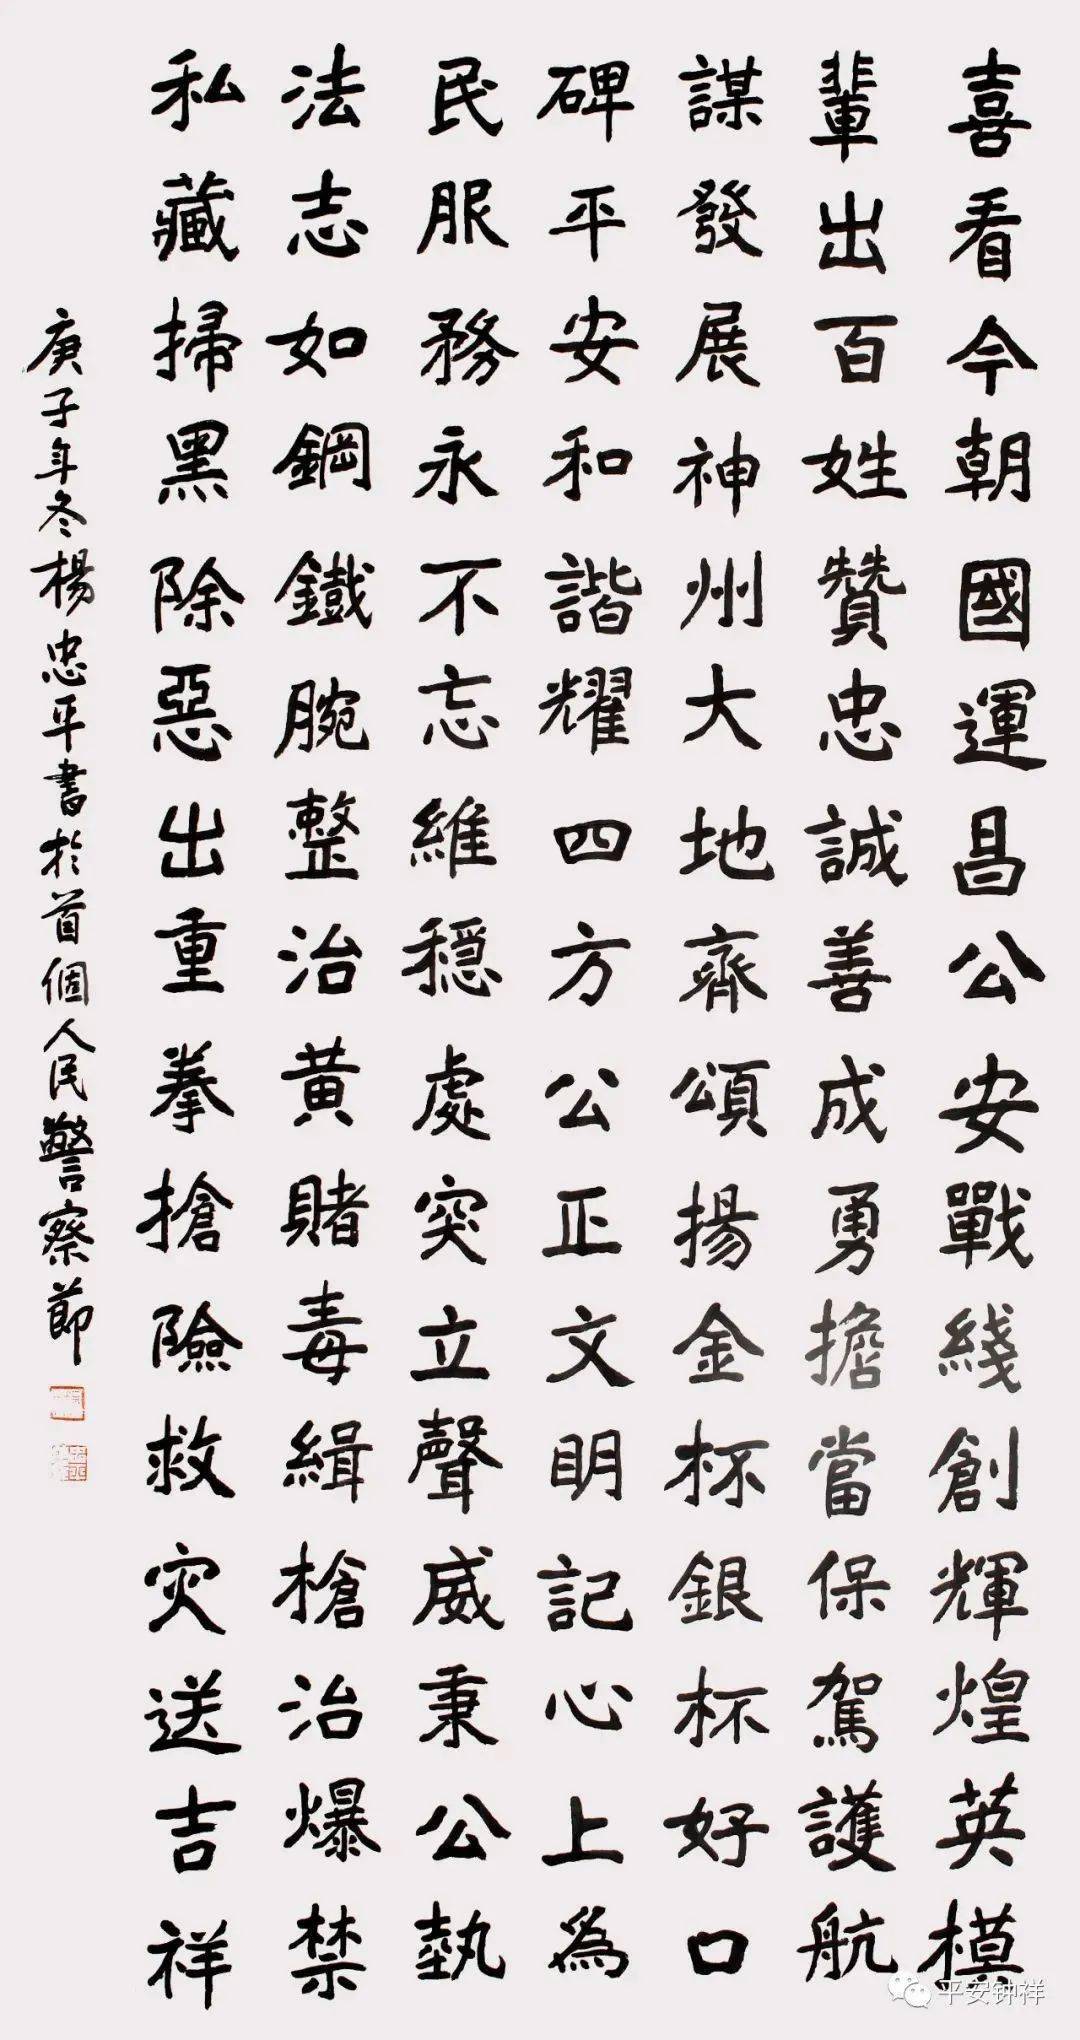 喜看今朝國運昌公安戰綫創輝煌英模
輩出百姓贊忠誠善成勇擔當保駕護航
謀發展神州大地齊頌揚金杯銀杯好口
碑平安和諧耀四方公正文明記心上為
民服務永不忘維穩處突立聲威秉公執
法志如鋼鐵腕整治黄賭毒緝槍治爆禁
私藏掃黑除惡出重拳搶險救灾送吉祥
庚子年冬楊忠平書於首個人民警察節
平安钟祥